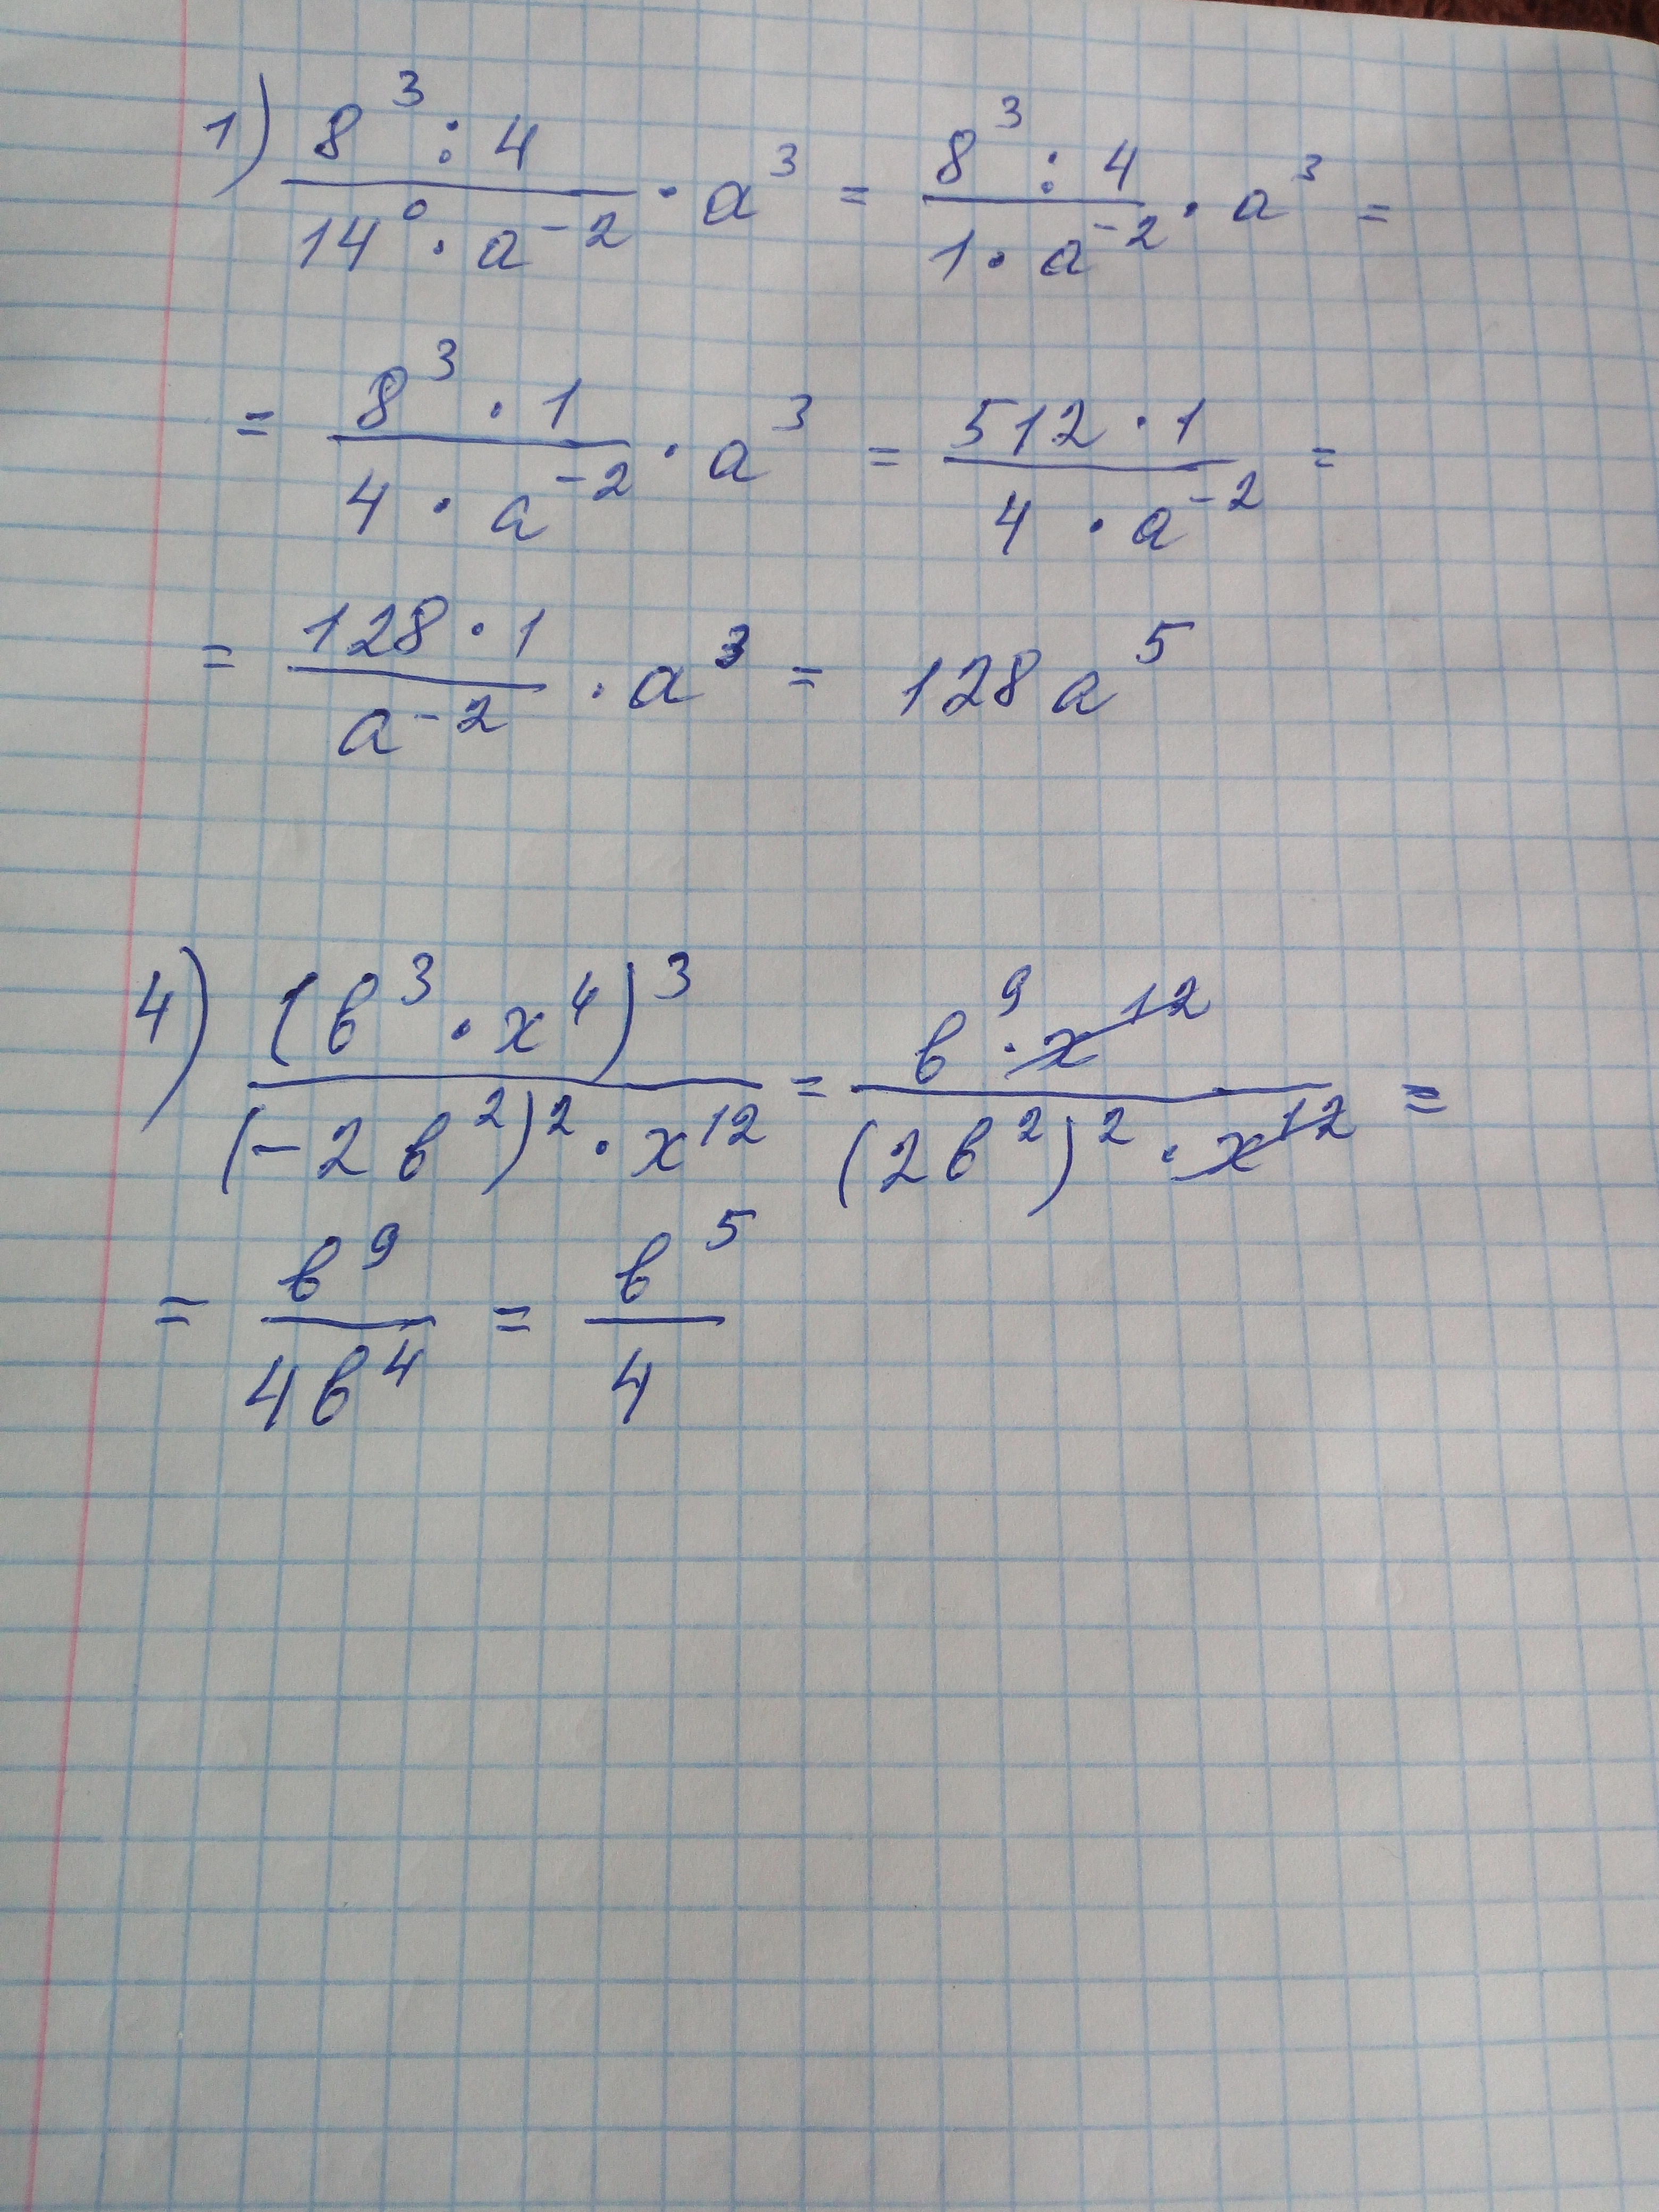 1) (8³ : 4)/(14⁰ · a⁻²) · a³ = (8³ : 4)/(1 · a⁻²) · a³ =
= (8³ · 1)/(4 · a⁻²) · a³ = (512 · 1)/(4 · a⁻²) =
= (128 · 1)/(a⁻²) · a³ = 128 a⁵
4) (в³ · x⁴)³/((-2в²)² · x¹²) = (в⁹ · x¹²)/((2в²)² · x¹²) =
= в⁹/(4в⁴) = в⁵/4